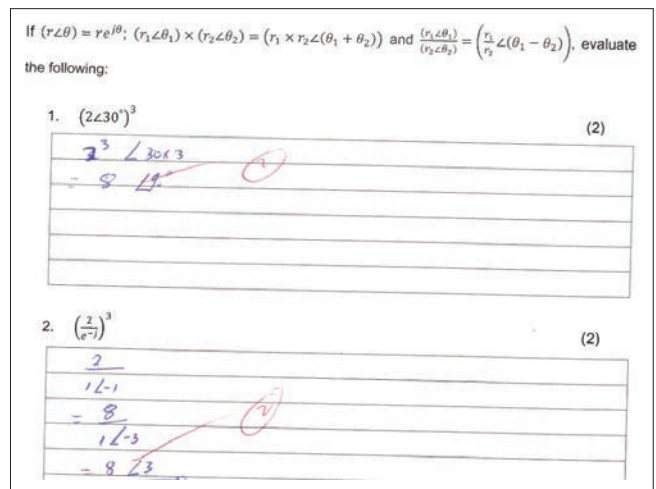 If (r∠θ) = re^{jθ}; (r₁∠θ₁) × (r₂∠θ₂) = (r₁ × r₂∠(θ₁ + θ₂)) and (r₁∠θ₁)/(r₂∠θ₂) = (r₁/r₂ ∠(θ₁ − θ₂)), evaluate
the following:
1. (2∠30°)³
(2)
2³ ∠30×3
= 8 ∠9°
2. (2/e^{-j})³
(2)
2
1∠-1
= 8
1∠-3
= 8 ∠3
2